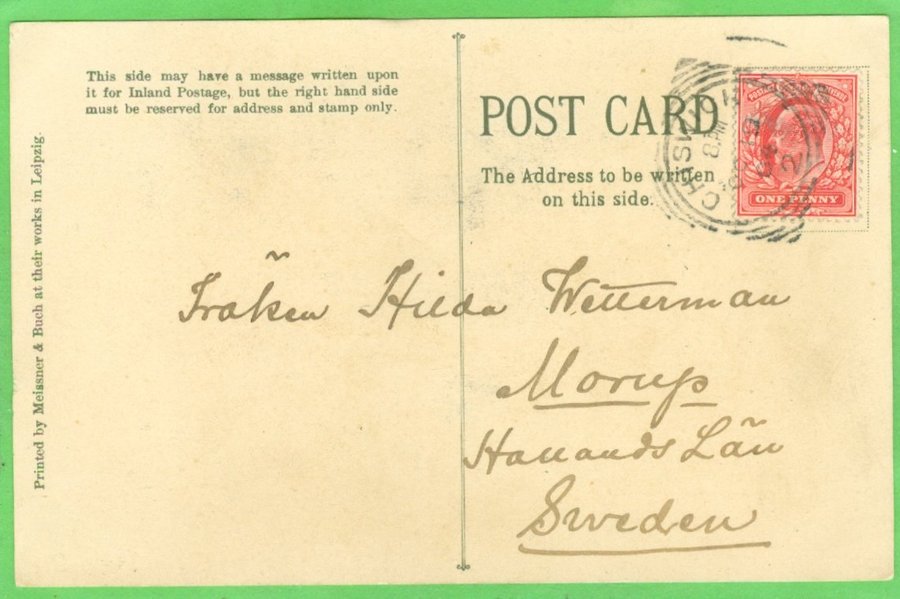 This side may have a message written upon
it for Inland Postage, but the right hand side
must be reserved for address and stamp only.
POST CARD
The Address to be written
on this side.
CHISWICK
8 PM
ONE PENNY
Fröken Hilda Wetterman
Morup
Hallands Län
Sweden
Printed by Meissner & Buch at their works in Leipzig.